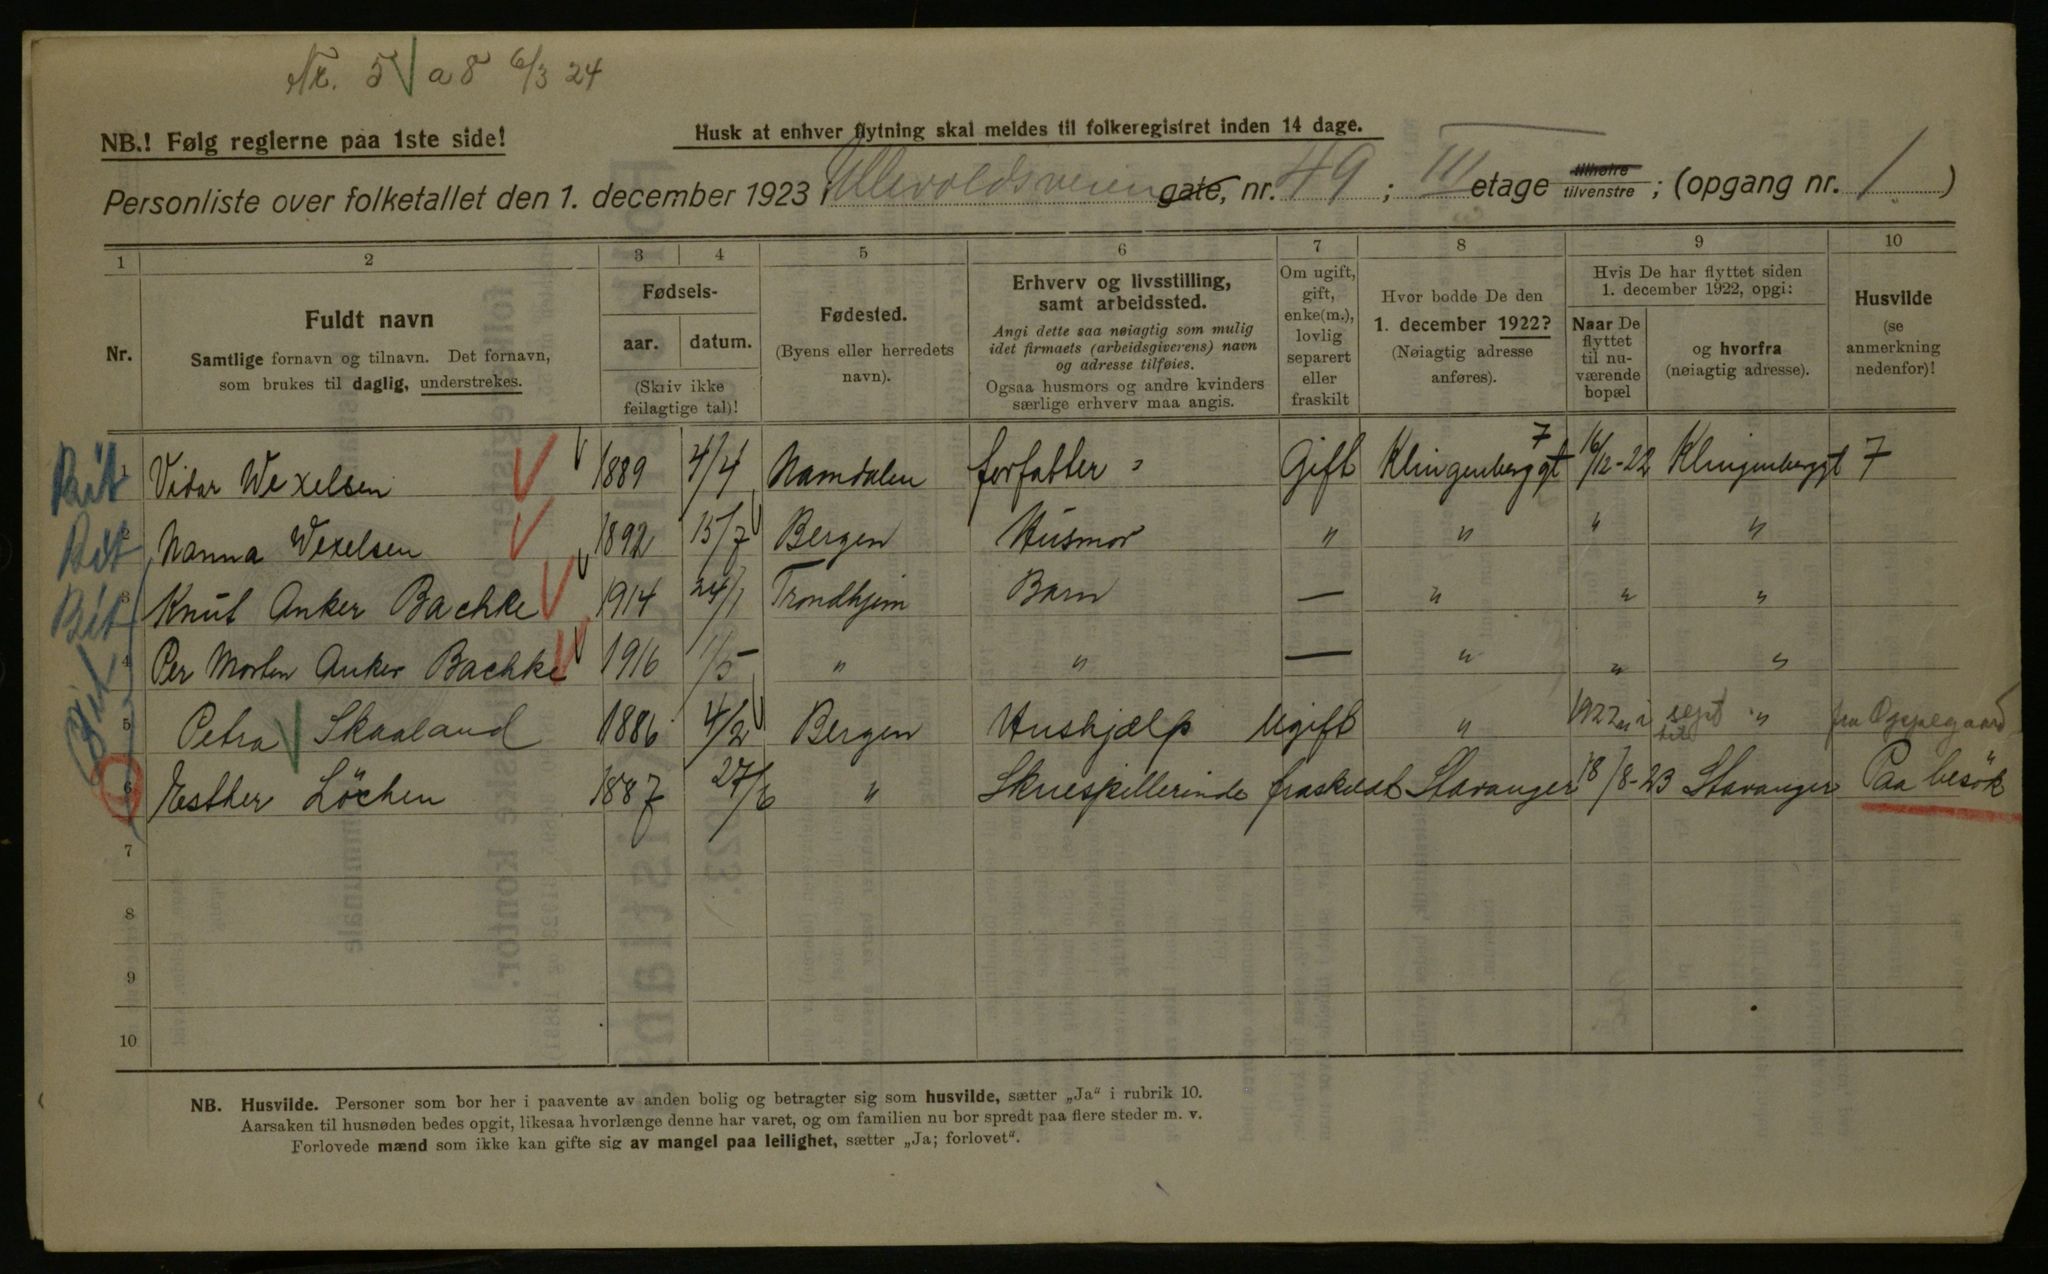 Nr. 5 a 8 6/3 24
NB.! Følg reglerne paa 1ste side!
Husk at enhver flytning skal meldes til folkeregistret inden 14 dage.
Personliste over folketallet den 1. december 1923 i Ullevoldsveien gate, nr. 49 ; III etage tilhøire tilvenstre ; (opgang nr. 1 )
1 2 3 4 5 6 7 8 9 10
Nr.
Fuldt navn
Samtlige fornavn og tilnavn. Det fornavn,
som brukes til daglig, understrekes.
Fødsels-
aar. datum.
(Skriv ikke
feilagtige tal)!
Fødested.
(Byens eller herredets
navn).
Erhverv og livsstilling,
samt arbeidssted.
Angi dette saa nøiagtig som mulig
idet firmaets (arbeidsgiverens) navn
og adresse tilføies.
Ogsaa husmors og andre kvinders
særlige erhverv maa angis.
Om ugift,
gift,
enke(m.),
lovlig
separert
eller
fraskilt
Hvor bodde De den
1. december 1922?
(Nøiagtig adresse
anføres).
Hvis De har flyttet siden
1. december 1922, opgi:
Naar De
flyttet
til nu-
værende
bopæl
og hvorfra
(nøiagtig adresse).
Husvilde
(se
anmerkning
nedenfor)!
1 Vidar Wexelsen 1889 4/4 Namdalen forfatter Gift Klingenberggt 7 16/12-22 Klingenberggt 7
2 Nanna Wexelsen 1892 15/7 Bergen Husmor " " " "
3 Knut Anker Bachke 1914 24/1 Trondhjem Barn — " " "
4 Per Morten Anker Bachke 1916 1/5 " " — " " "
5 Petra Skaaland 1886 4/2 Bergen Hushjælp Ugift " 1922 i sept " fra Oppegaard
6 Esther Löchen 1887 27/6 " Skuespillerinde fraskildt Stavanger 18/8-23 Stavanger Paa besök
7
8
9
10
NB. Husvilde. Personer som bor her i paavente av anden bolig og betragter sig som husvilde, sætter „Ja“ i rubrik 10.
Aarsaken til husnøden bedes opgit, likesaa hvorlænge denne har varet, og om familien nu bor spredt paa flere steder m. v.
Forlovede mænd som ikke kan gifte sig av mangel paa leilighet, sætter „Ja; forlovet“.